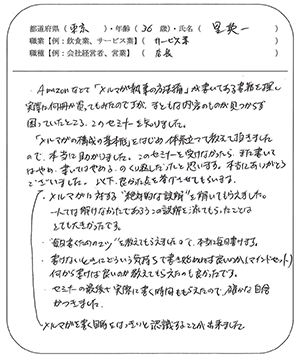 都道府県( 東京 )・年齢( 36 歳)・氏名( 星 英一
職業【例:飲食業、サービス業】( サービス業
職種【例:会社経営者、営業】( 店長
・Amazonなどで「メルマガ執筆の方法論」が書いてある書籍を探し
実際に何冊か買ってもみたのですが、まともな内容のものが見つからず
困っていたところ、このセミナーを知りました。
「メルマガの構成の基礎」をはじめ体系立てて教えて頂きました
ので、本当に助かりました。このセミナーを受けなかったら、まだ書いて
はやめ、書いてはやめる、のくり返しだったと思います。本当にありがとう
ございました。以下、良かった点を挙げさせてもらいます。
・メルマガに対する"絶対的な誤解"を解いてもらえました。
一人では解けなかったであろうこの誤解を流してもらったことは
とても大きかったです。
・"毎日書くためのコツ"を教えてもらえましたので、本気で毎日書けます。
・書けないときにどういう気持ちで書き始めれば良いのか(マインドセット)
何から書けば良いのか教えてもらえたのも良かったです。
・セミナーの最後で実際に書く時間ももらえたので、確かな自信
がつきました。
・メルマガを書く目的をはっきりと認識することが出来ました